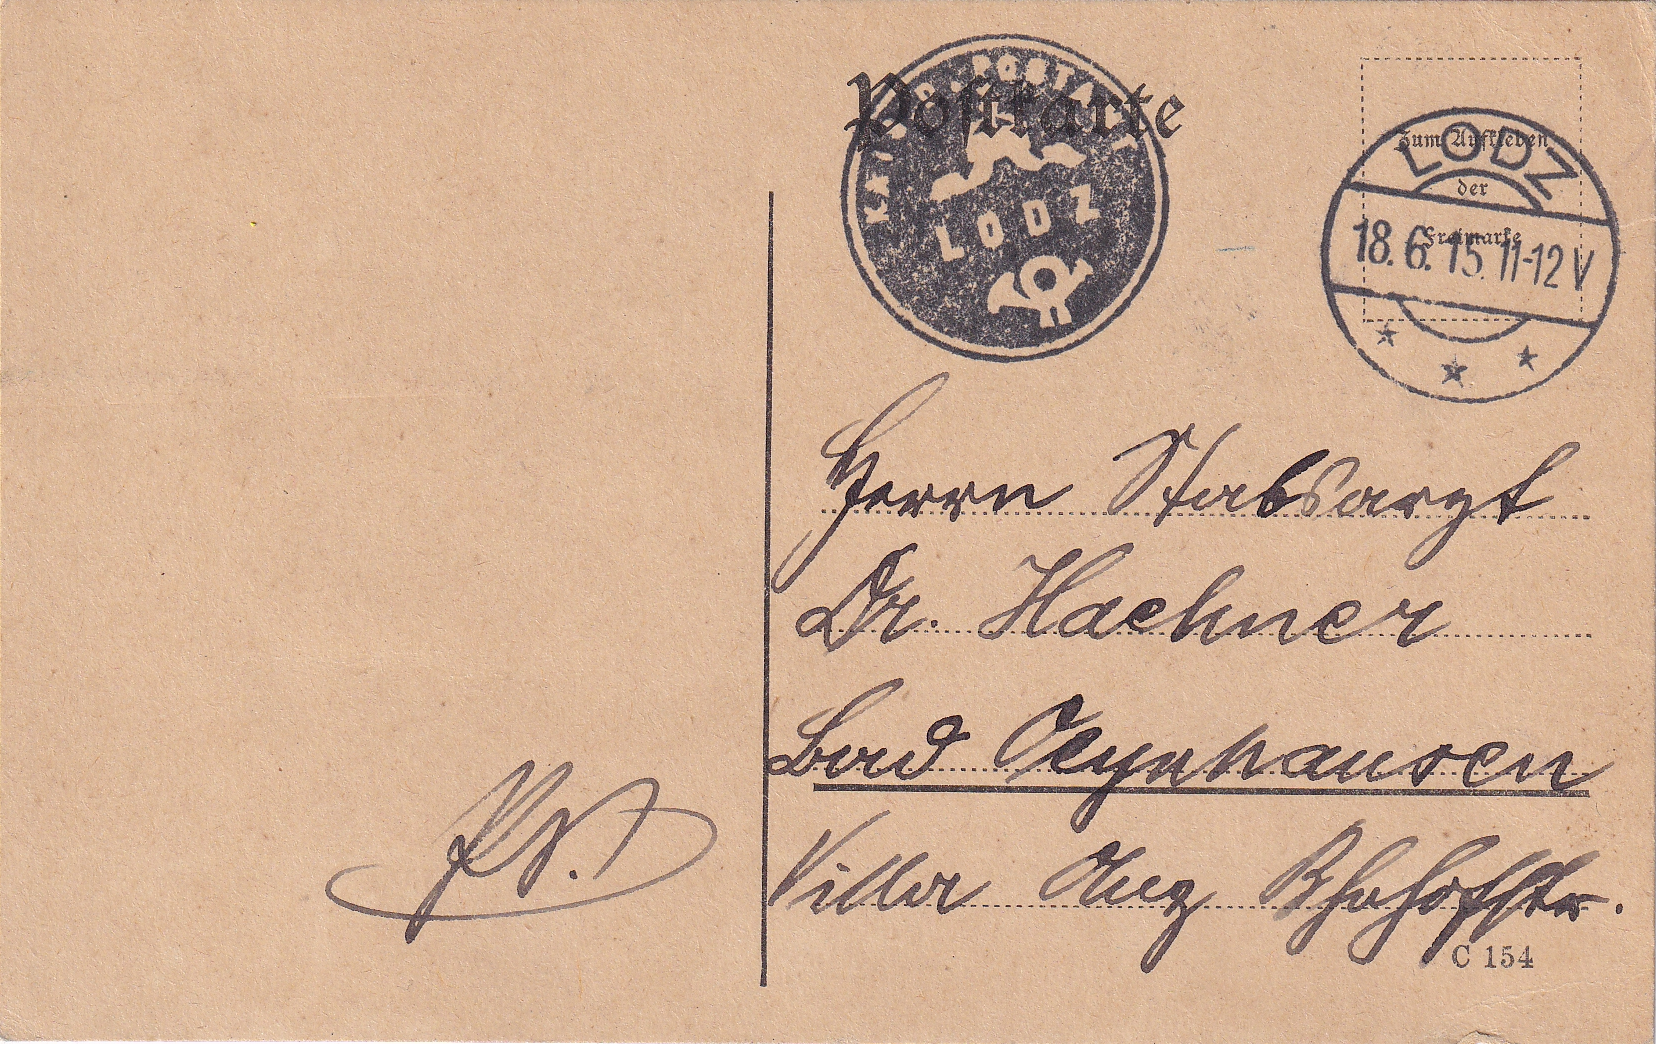 Postkarte
KAIS. D. POSTAMT
LODZ
Zum Aufkleben
der
Freimarke
LODZ
18.6.15. 11-12 V
Herrn Stabsarzt
Dr. Haehner
Bad Oeynhausen
Villa
C 154